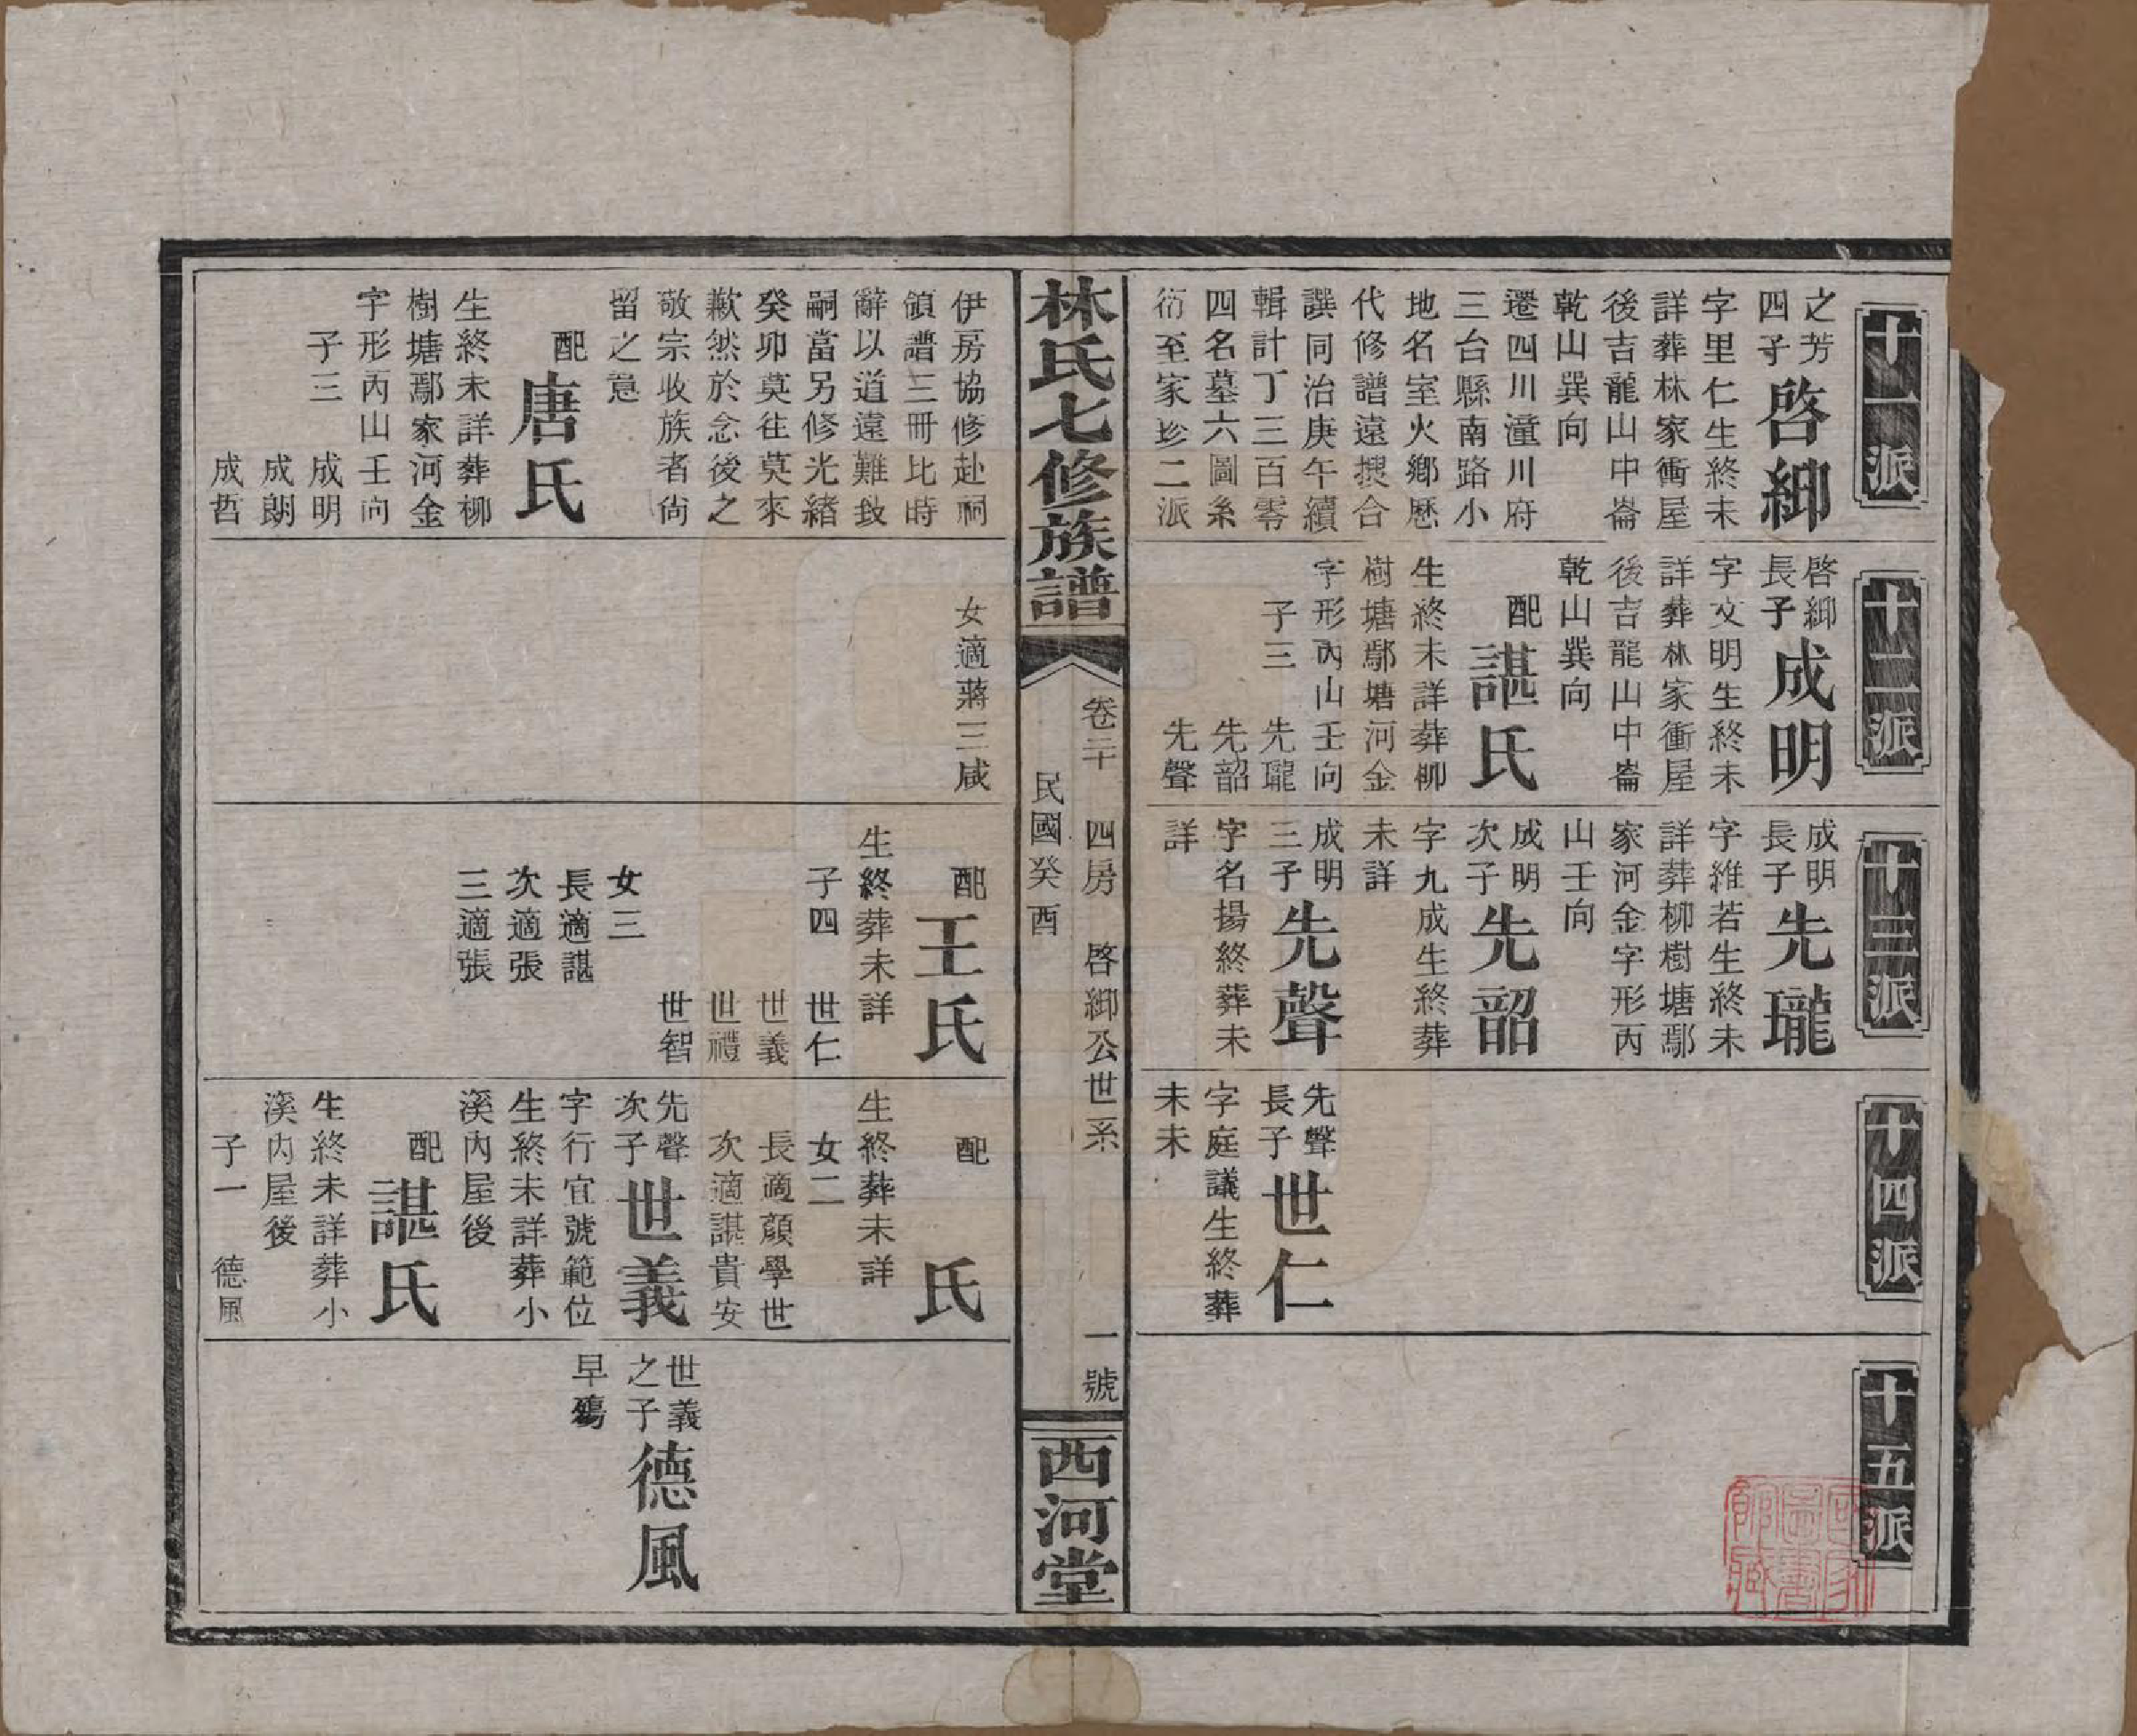 十一派
之芳
四子
啓鄉
字里仁生終未
詳葬林家衝屋
後吉龍山中崙
乾山巽向
遷四川潼川府
三台縣南路小
地名室火鄉歷
代修譜遠搜合
譔同治庚午續
輯計丁三百零
四名墓六圖系
衍至家珍二派
十二派
啓鄉
長子
成明
字文明生終未
詳葬林家衝屋
後吉龍山中崙
乾山巽向
配
諶氏
生終未詳葬柳
樹塘鄢塘河金
字形丙山壬向
子三
先瓏
先韶
先聲
十三派
成明
長子
先瓏
字維若生終未
詳葬柳樹塘鄢
家河金字形丙
山壬向
成明
次子
先韶
字九成生終葬
未詳
成明
三子
先聲
字名揚終葬未
詳
十四派
先聲
長子
世仁
字庭議生終葬
未未
十五派
林氏七修族譜
卷二十
四房
啓鄉公世系
一號
民國癸酉
西河堂
伊房協修赴祠
領譜三冊比時
辭以道遠難致
嗣當另修光緒
癸卯莫往莫來
歉然於念後之
敬宗收族者尙
留之意
配
唐氏
生終未詳葬柳
樹塘鄢家河金
字形丙山壬向
子三
成明
成朗
成哲
女適蔣三咸
配
王氏
生終葬未詳
子四
世仁
世義
世禮
世智
女三
長適諶
次適張
三適張
配
氏
生終葬未詳
女二
長適顏學世
次適諶貴安
先聲
次子
世義
字行宜號範位
生終未詳葬小
溪內屋後
配
諶氏
生終未詳葬小
溪內屋後
子一
德風
世義
之子
德風
早殤